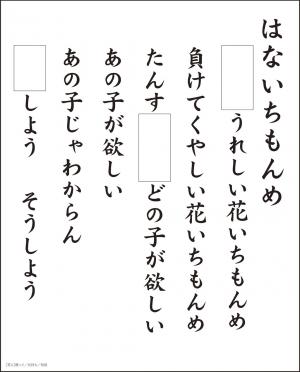 はないちもんめ
うれしい花いちもんめ
負けてくやしい花いちもんめ
たんす どの子が欲しい
あの子が欲しい
あの子じゃわからん
しよう そうしよう